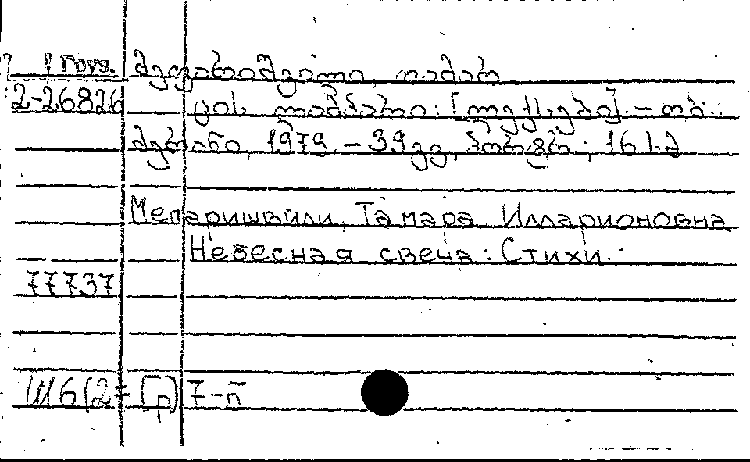 Груз.
2-26826
მეფარიშვილი, თამარ
ცის ლამპარი: [ლექსები]. - თბ.:
მერანი, 1979. - 39 გვ., პორტრ.; 16 სმ
Мепаришвили, Тамара Илларионовна
Небесная свеча: Стихи.
77737
Ш6(2=Гр)7-п